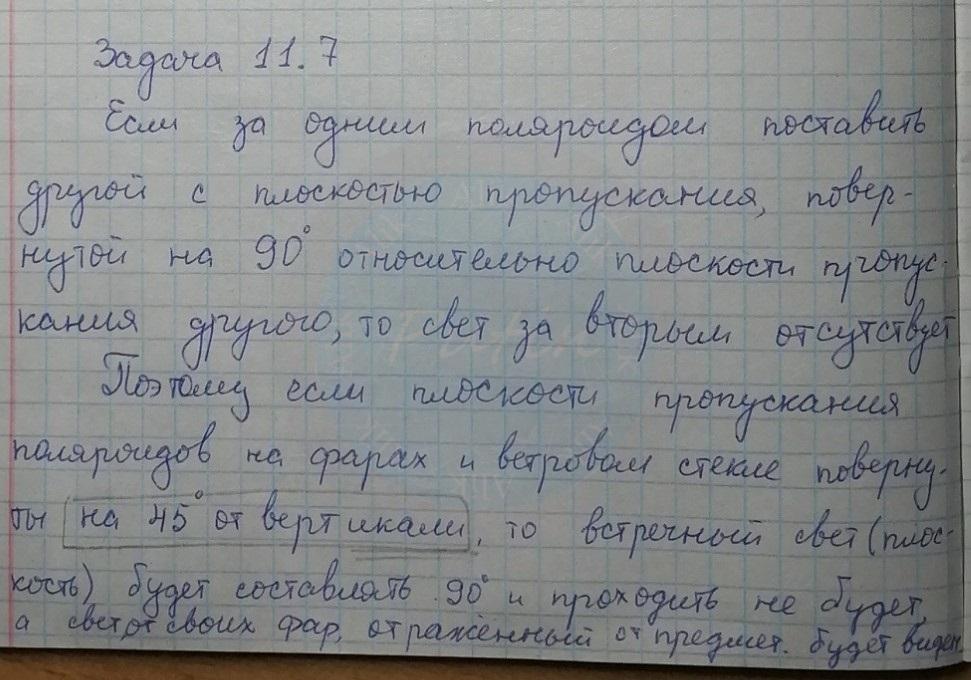 Задача 11.7
Если за одним поляроидом поставить
другой с плоскостью пропускания, повер-
нутой на 90° относительно плоскости пропус-
кания другого, то свет за вторым отсутствует
Поэтому если плоскости пропускания
поляроидов на фарах и ветровом стекле поверну-
ты на 45° от вертикали, то встречный свет (плос-
кость) будет составлять 90° и проходить не будет,
а свет от своих фар, отражённый от предмет. будет виден.